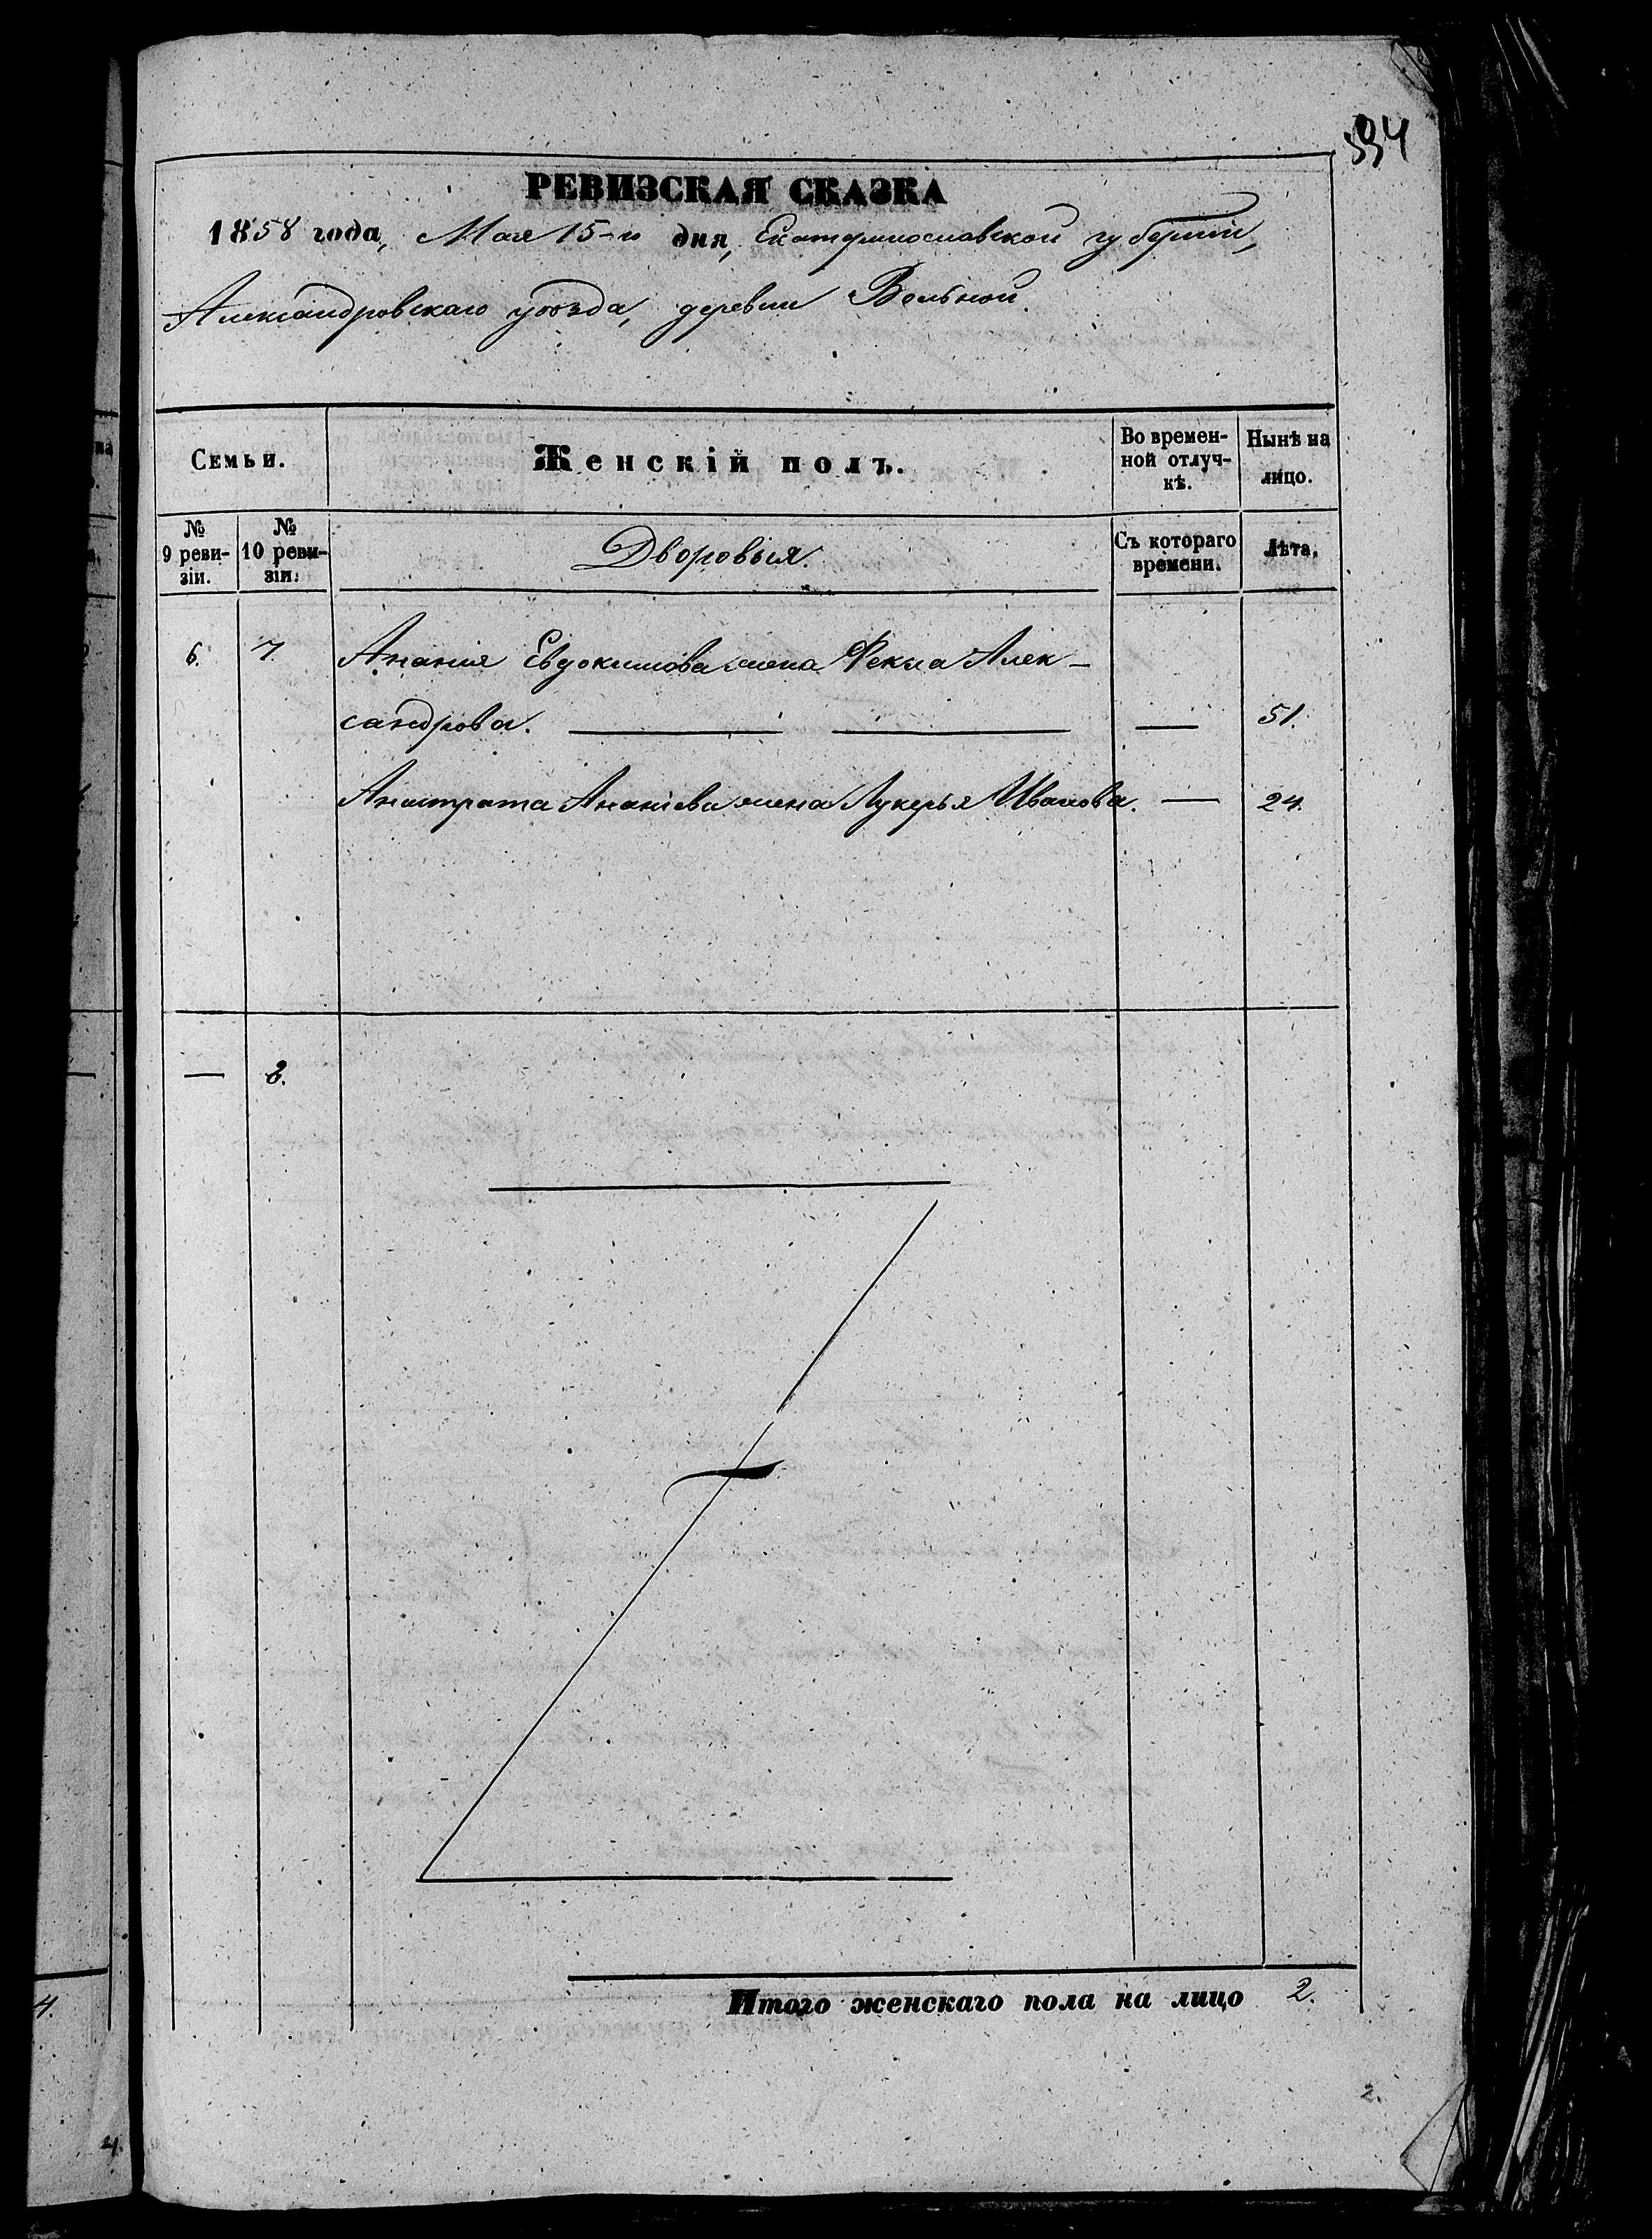 334
РЕВИЗСКАЯ СКАЗКА
1858 года, Мая 15-го дня, Екатеринославской губернии,
Александровскаго уѣзда, деревни Вольной.
Семьи.
Женскій полъ.
Во времен-
ной отлуч-
кѣ.
Нынѣ на
лицо.
№
9 реви-
зіи.
№
10 реви-
зіи.
Дворовыя.
Съ котораго
времени.
Лѣта.
6. 7. Ананія Евдокимова жена Фекла Алек-
сандрова. — 51.
Анистрата Ананіева жена Лукерья Иванова. — 24.
— 8.
Итого женскаго пола на лицо 2.
2.
4.
4.